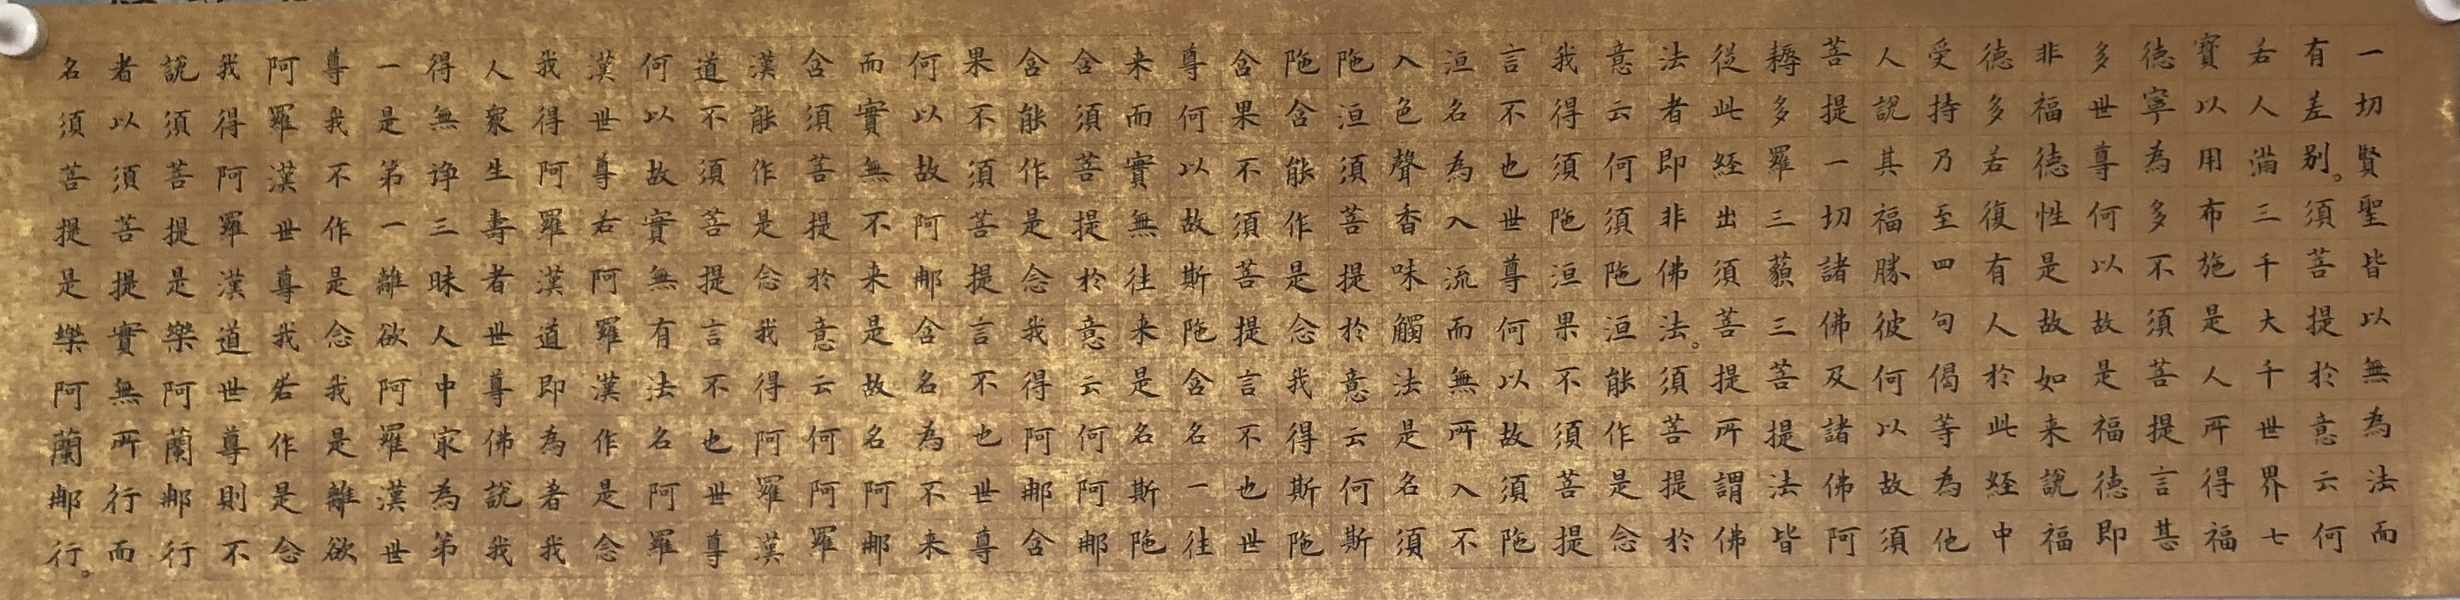 一切賢聖皆以無為法而
有差别。須菩提於意云何
若人滿三千大千世界七
寶以用布施是人所得福
德寧為多不須菩提言甚
多世尊何以故是福德即
非福德性是故如来說福
德多若復有人於此經中
受持乃至四句偈等為他
人說其福勝彼何以故須
菩提一切諸佛及諸佛阿
耨多羅三藐三菩提法皆
從此經出須菩提所謂佛
法者即非佛法。須菩提於
意云何須陁洹能作是念
我得須陁洹果不須菩提
言不也世尊何以故須陁
洹名為入流而無所入不
入色聲香味觸法是名須
陁洹須菩提於意云何斯
陁含能作是念我得斯陁
含果不須菩提言不也世
尊何以故斯陁含名一往
来而實無往来是名斯陁
含須菩提於意云何阿那
含能作是念我得阿那含
果不須菩提言不也世尊
何以故阿那含名為不来
而實無不来是故名阿那
含須菩提於意云何阿羅
漢能作是念我得阿羅漢
道不須菩提言不也世尊
何以故實無有法名阿羅
漢世尊若阿羅漢作是念
我得阿羅漢道即為著我
人衆生壽者世尊佛說我
得無諍三昧人中冣為第
一是第一離欲阿羅漢世
尊我不作是念我是離欲
阿羅漢世尊我若作是念
我得阿羅漢道世尊則不
說須菩提是樂阿蘭那行
者以須菩提實無所行而
名須菩提是樂阿蘭那行。